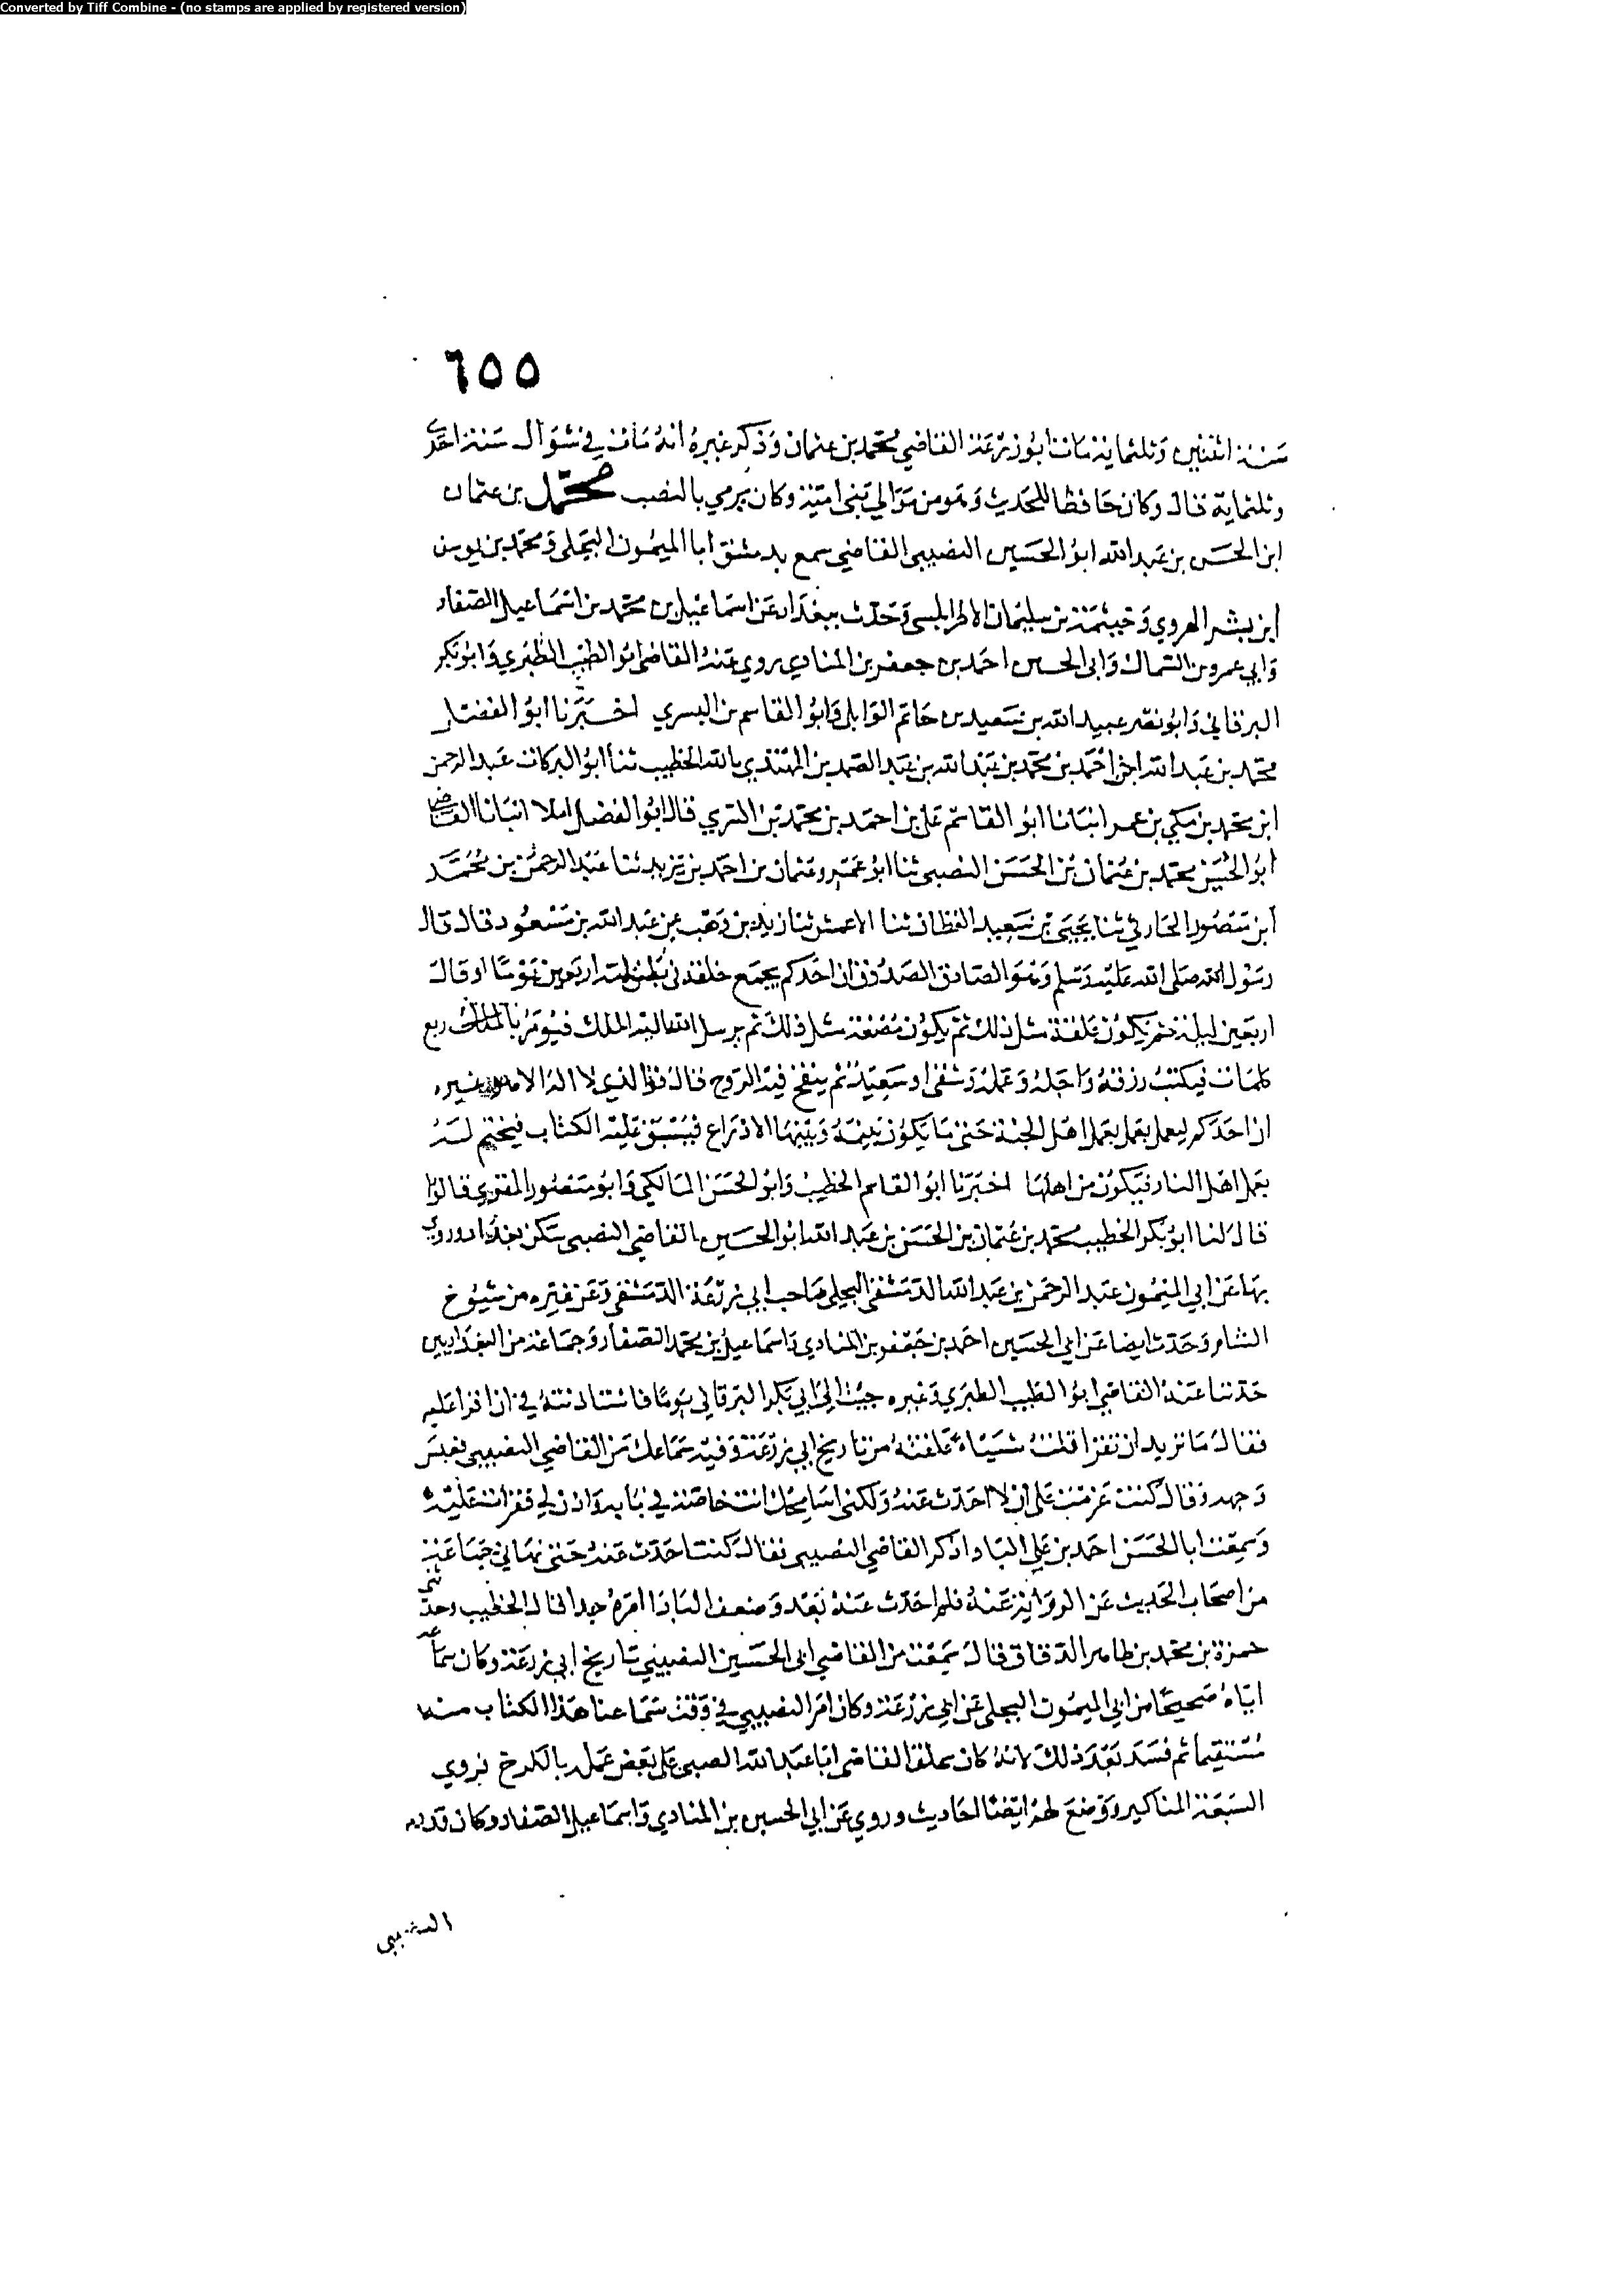 Converted by Tiff Combine - (no stamps are applied by registered version)
٦٥٥
سنة اثنتين وثلثماية مات ابو زرعة القاضي محمد بن عثمان وذكر غيره انه مات في شوال سنة احدى
وثلثماية قال وكان حافظا للحديث وهو من موالي بني امية وكان يرمي بالنصب محمد بن عثمان
ابن الحسن بن عبد الله ابو الحسين النصيبي القاضي سمع بدمشق ابا الميمون البجلي ومحمد بن يوسف
ابن بشر الهروي وخيثمة بن سليمان الاطرابلسي وحدث ببغداد عن اسماعيل بن محمد بن اسماعيل الصفار
وابي عمرو بن السماك وابي الحسين احمد بن جعفر بن المنادي روي عنه القاضي ابو الطيب الطبري وابو بكر
البرقاني وابو نصر عبيد الله بن سعيد بن حاتم الوايلي وابو القاسم بن البسري اخبرنا ابو الفضل
محمد بن عبد الله بن احمد بن محمد بن عبد الله بن عبد الصمد بن المهتدي بالله الخطيب ثنا ابو البركات عبد الرحمن
ابن محمد بن مكي بن عمر انبانا ابو القاسم علي بن احمد بن محمد بن البسري قال ابو الفضل املا انبانا القاضي
ابو الحسين محمد بن عثمان بن الحسن النصيبي ثنا ابو عمرو عثمان بن احمد بن يزيد ثنا عبد الرحمن بن محمد
ابن منصور الحارثي ثنا يحيى بن سعيد القطان ثنا الاعمش ثنا زيد بن وهب عن عبد الله بن مسعود قال قال
رسول الله صلى الله عليه وسلم وهو الصادق الصدوق ان احدكم يجمع خلقه في بطن امه اربعين يوما او قال
اربعين ليلة ثم يكون علقة مثل ذلك ثم يكون مضغة مثل ذلك ثم يرسل الله اليه الملك فيؤمر باربع
كلمات فيكتب رزقه واجله وعمله وشقي او سعيد ثم ينفخ فيه الروح قال فوالذي لا اله الا هو غيره
ان احدكم ليعمل بعمل اهل الجنة حتى ما يكون بينه وبينها الا ذراع فيسبق عليه الكتاب فيختم له
بعمل اهل النار فيكون من اهلها اخبرنا ابو القاسم الخطيب وابو الحسن المالكي وابو منصور المقري قالوا
قال لنا ابو بكر الخطيب محمد بن عثمان بن الحسن بن عبد الله ابو الحسين القاضي النصيبي سكن بغداد وروى
بها عن ابي الميمون عبد الرحمن بن عبد الله الدمشقي البجلي صاحب ابي زرعة الدمشقي وعن غيره من شيوخ
الشام وحدث ايضا عن ابي الحسين احمد بن جعفر بن المنادي واسماعيل بن محمد الصفار وجماعة من البغداديين
حدثنا عنه القاضي ابو الطيب الطبري وغيره جيت الى ابي بكر البرقاني يوما فاستاذنته في ان اقرا عليه
فقال ما تريد ان تقرا قلت شيئا علقته من تاريخ ابي زرعة وفيه سماعك من القاضي النصيبي فعبس
وجهه وقال كنت عزمت على ان لا احدث عنه ولكني اسامحك انت خاصة في بابه واذن لي فقرات عليه
وسمعت ابا الحسن احمد بن علي البادا ذكر القاضي النصيبي فقال كنت احدث عنه حتى نهاني جماعة
من اصحاب الحديث عن الرواية عنه فلم احدث عنه بعد وضعف البادا امره جدا قال الخطيب وحدثني
حمزة بن محمد بن طاهر الدقاق قال سمعت من القاضي ابي الحسين النصيبي تاريخ ابي زرعة وكان سماعه
اياه صحيحا من ابي الميمون البجلي عن ابي زرعة وكان امر النصيبي في وقت سماعنا هذا الكتاب منه
مستقيما ثم فسد بعد ذلك لانه كان يخلف القاضي ابا عبد الله الضبي على بعض عمله بالكرخ فروي
السبعة المناكير ووضع لهم ايضا احاديث وروي عن ابي الحسين بن المنادي واسماعيل الصفار وكان قدم
النصيبي